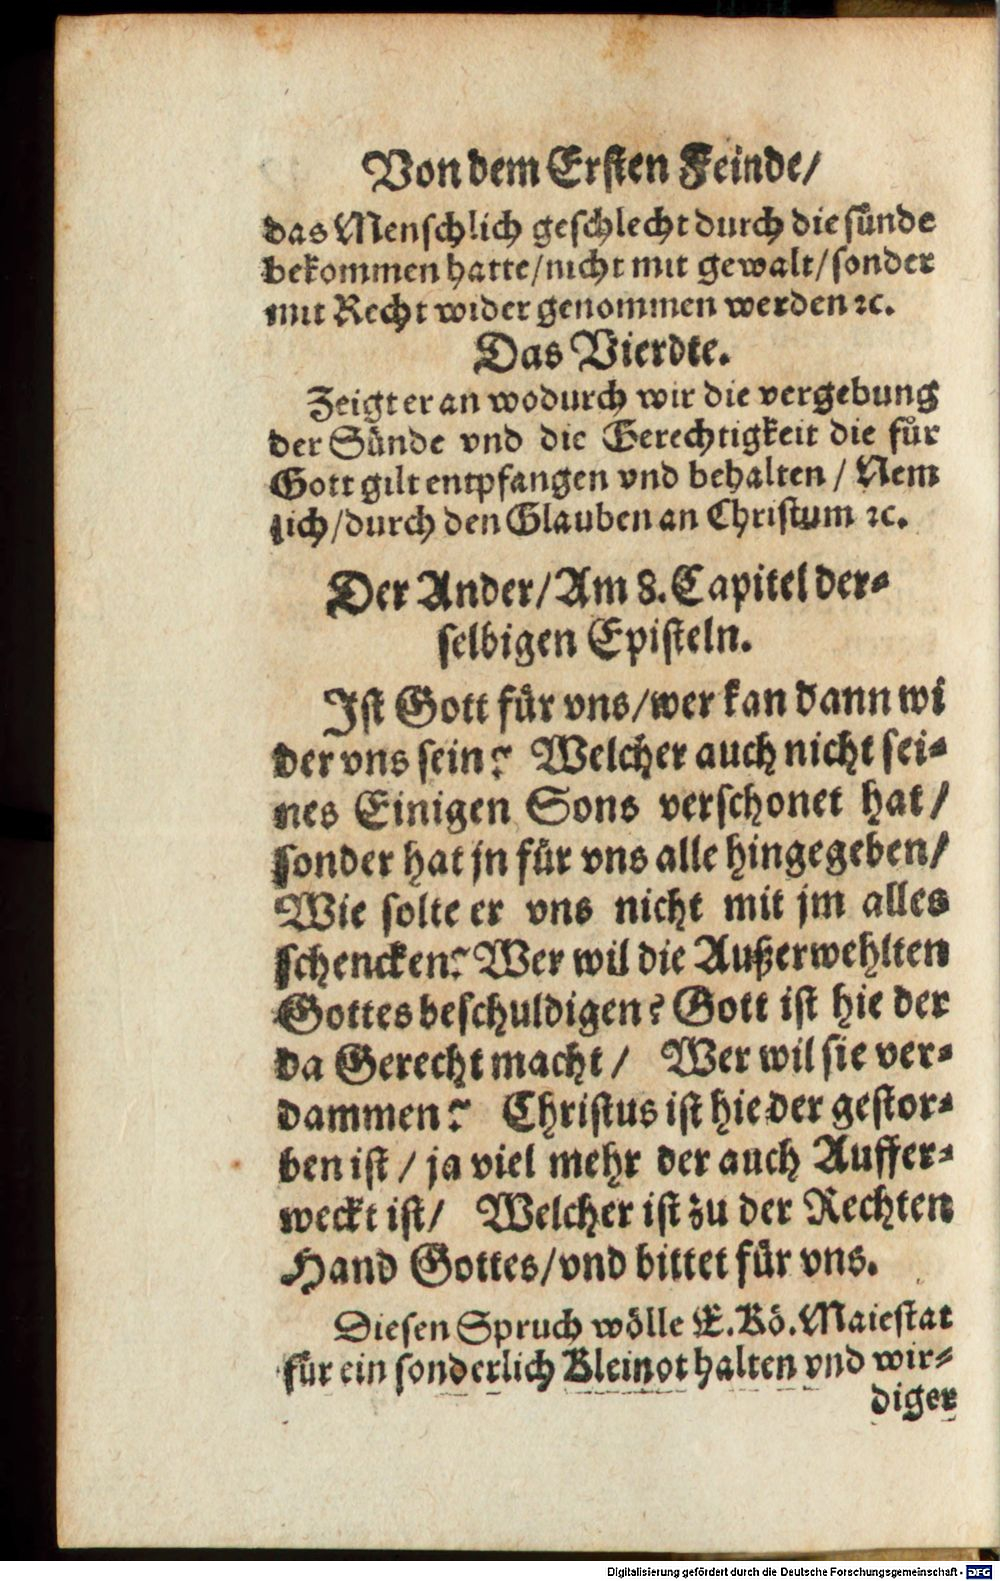 Von dem Ersten Feinde/
das Menschlich geschlecht durch die sünde
bekommen hatte/nicht mit gewalt/sonder
mit Recht wider genommen werden ꝛc.
Das Vierdte.
Zeigt er an wodurch wir die vergebung
der Sünde vnd die Gerechtigkeit die für
Gott gilt entpfangen vnd behalten / Nem
lich/durch den Glauben an Christum ꝛc.
Der Ander/Am 8. Capitel der-
selbigen Episteln.
Ist Gott für vns/wer kan dann wi
der vns sein? Welcher auch nicht sei-
nes Einigen Sons verschonet hat/
sonder hat jn für vns alle hingegeben/
Wie solte er vns nicht mit jm alles
schencken? Wer wil die Außerwehlten
Gottes beschuldigen? Gott ist hie der
da Gerecht macht/ Wer wil sie ver-
dammen? Christus ist hie der gestor-
ben ist / ja viel mehr der auch Auffer-
weckt ist/ Welcher ist zu der Rechten
Hand Gottes/vnd bittet für vns.
Diesen Spruch wölle E. Kö. Maiestat
für ein sonderlich Kleinot halten vnd wir-
diger
Digitalisierung gefördert durch die Deutsche Forschungsgemeinschaft - DFG